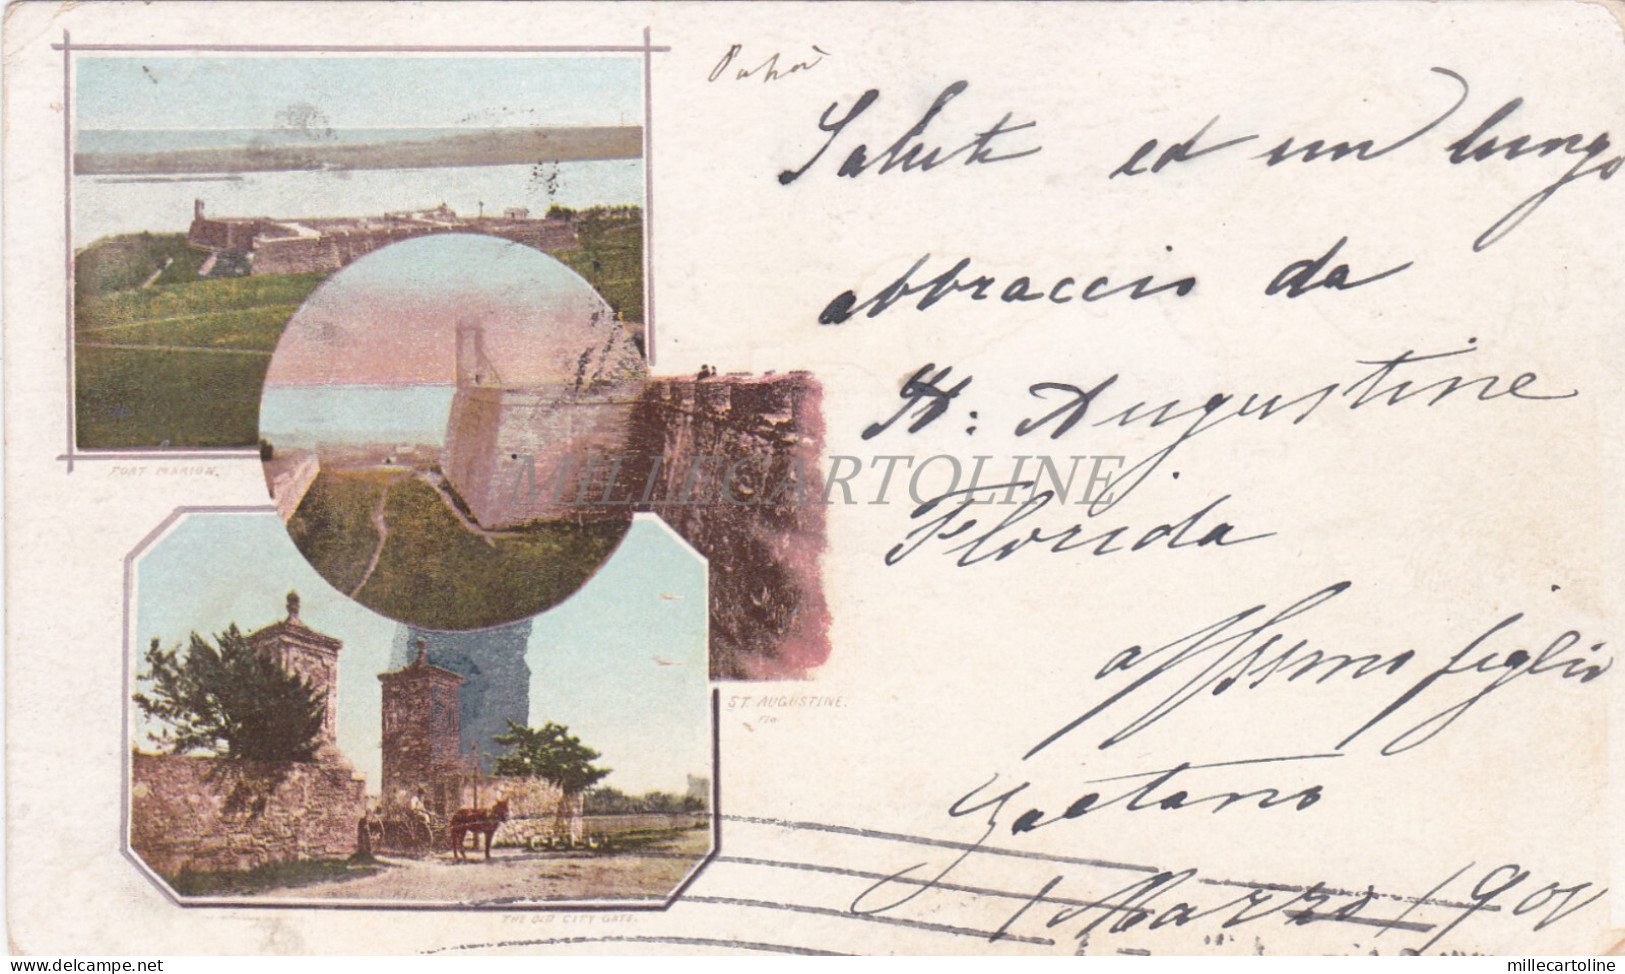 Papà
Saluti ed un lungo
abbraccio da
St. Augustine
Florida
affssmo figlio
Gaetano
1 Marzo 1901
FORT MARION.
ST. AUGUSTINE.
Fla
THE OLD CITY GATE.
MILLECARTOLINE
delcampe.net
millecartoline